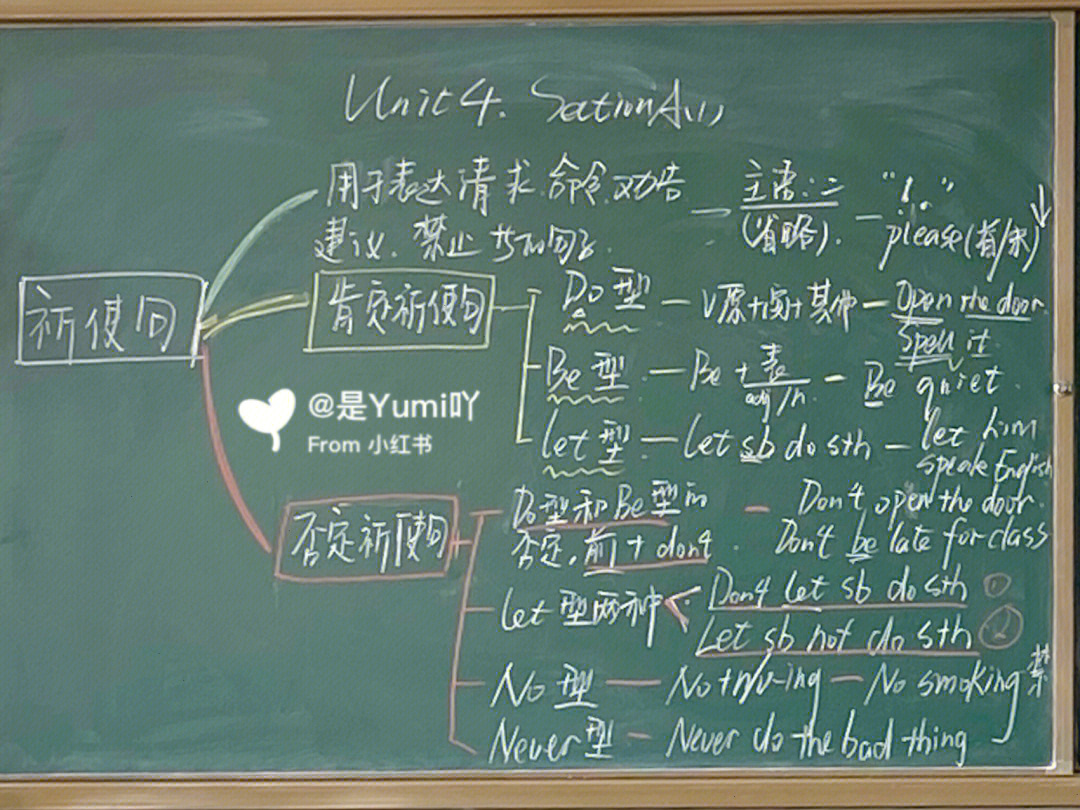 Unit 4. Section A(1)
用于表达请求.命令.劝告
建议.禁止等的句子.
主语:二
(省略).
— "!."
please(首/末)↓
祈使句
肯定祈使句
Do型 — V原+宾+其他 — Open the door.
Spell it.
Be型 — Be +表 adj/n — Be quiet.
let型 — Let sb do sth — let him
speak English
@是Yumi吖
From 小红书
否定祈使句
Do型和Be型的 — Don't open the door.
否定,前+don't. Don't be late for class
let型两种 Don't let sb do sth ①
Let sb not do sth ②
No型 — No+n/v-ing — No smoking 禁
Never型 — Never do the bad thing